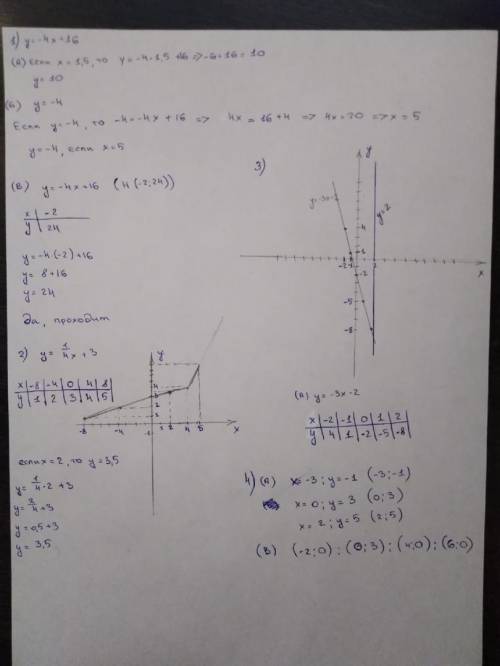 1) y=-4x+16
(А) Если x=1,5, то y=-4·1,5+16=>-6+16=10
y=10
(Б) y=-4
Если y=-4, то -4=-4x+16 => 4x=16+4 => 4x=20 => x=5
y=-4, если x=5
(В) y=-4x+16 (Н(-2;24))
x | -2
y | 24
y=-4·(-2)+16
y=8+16
y=24
Да, проходит
2) y=1/4x+3
x | -8 | -4 | 0 | 4 | 8
y | 1 | 2 | 3 | 4 | 5
y
4
3
2
1
-8 -4 -1 0 2 4 5 x
если x=2, то y=3,5
y=1/4·2+3
y=2/4+3
y=0,5+3
y=3,5
3)
y
y=-3x-2
y=-2
4
1
-2 -1 2 x
-2
-5
-8
(А) y=-3x-2
x | -2 | -1 | 0 | 1 | 2
y | 4 | 1 | -2 | -5 | -8
4) (А) x=-3; y=-1 (-3;-1)
x=0; y=3 (0;3)
x=2; y=5 (2;5)
(В) (-2;0); (0;3); (4;0); (6;0)